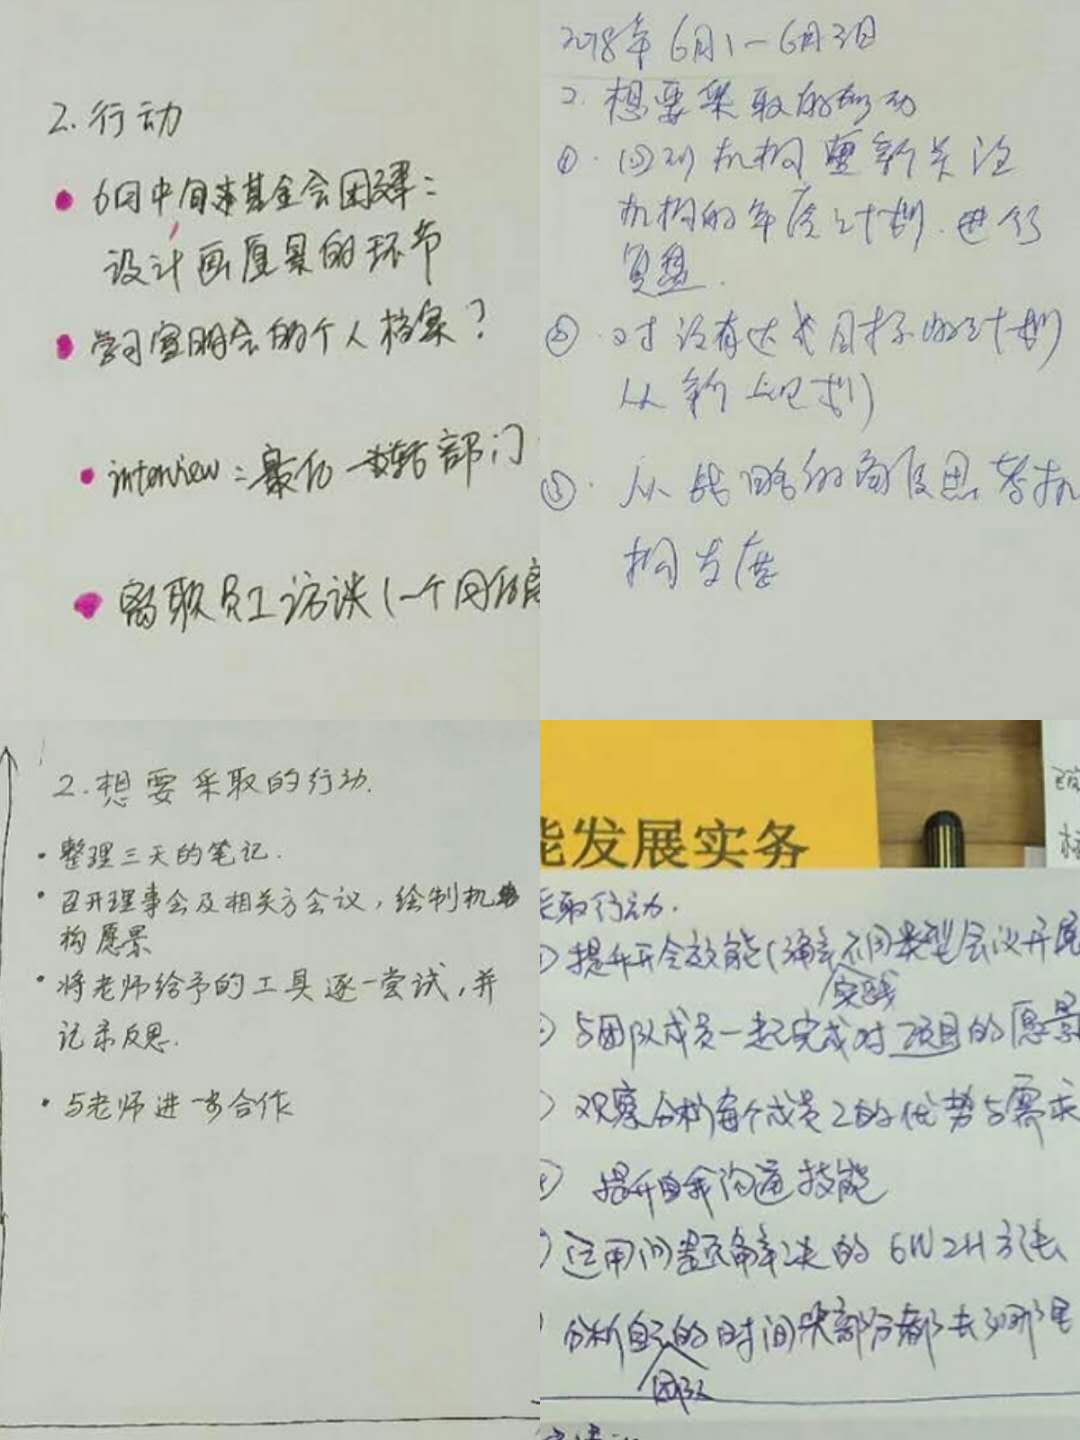 2. 行动
6月中旬基金会团建：
设计画愿景的环节
学习宣明会的个人档案？
interview：最后一轮 部门
离职员工访谈（一个月后
2018年6月1—6月3日
2. 想要采取的行动
①. 回到机构重新关注
机构的年度计划.进行
复盘.
②. 对没有达成目标的计划
从新规划
③. 从战略的角度思考机
构发展
2.想要采取的行动.
·整理三天的笔记.
·召开理事会及相关方会议，绘制机
构愿景
·将老师给予的工具逐一尝试，并
记录反思.
·与老师进一步合作
能发展实务
采取行动.
提升开会效能（确定不同类型会议开展
实践
与团队成员一起完成对项目的愿景
观察分析每个成员的优势与需求
提升自我沟通技能
运用问题解决的6W2H方法
分析自己的时间大部分都去到哪里
团队